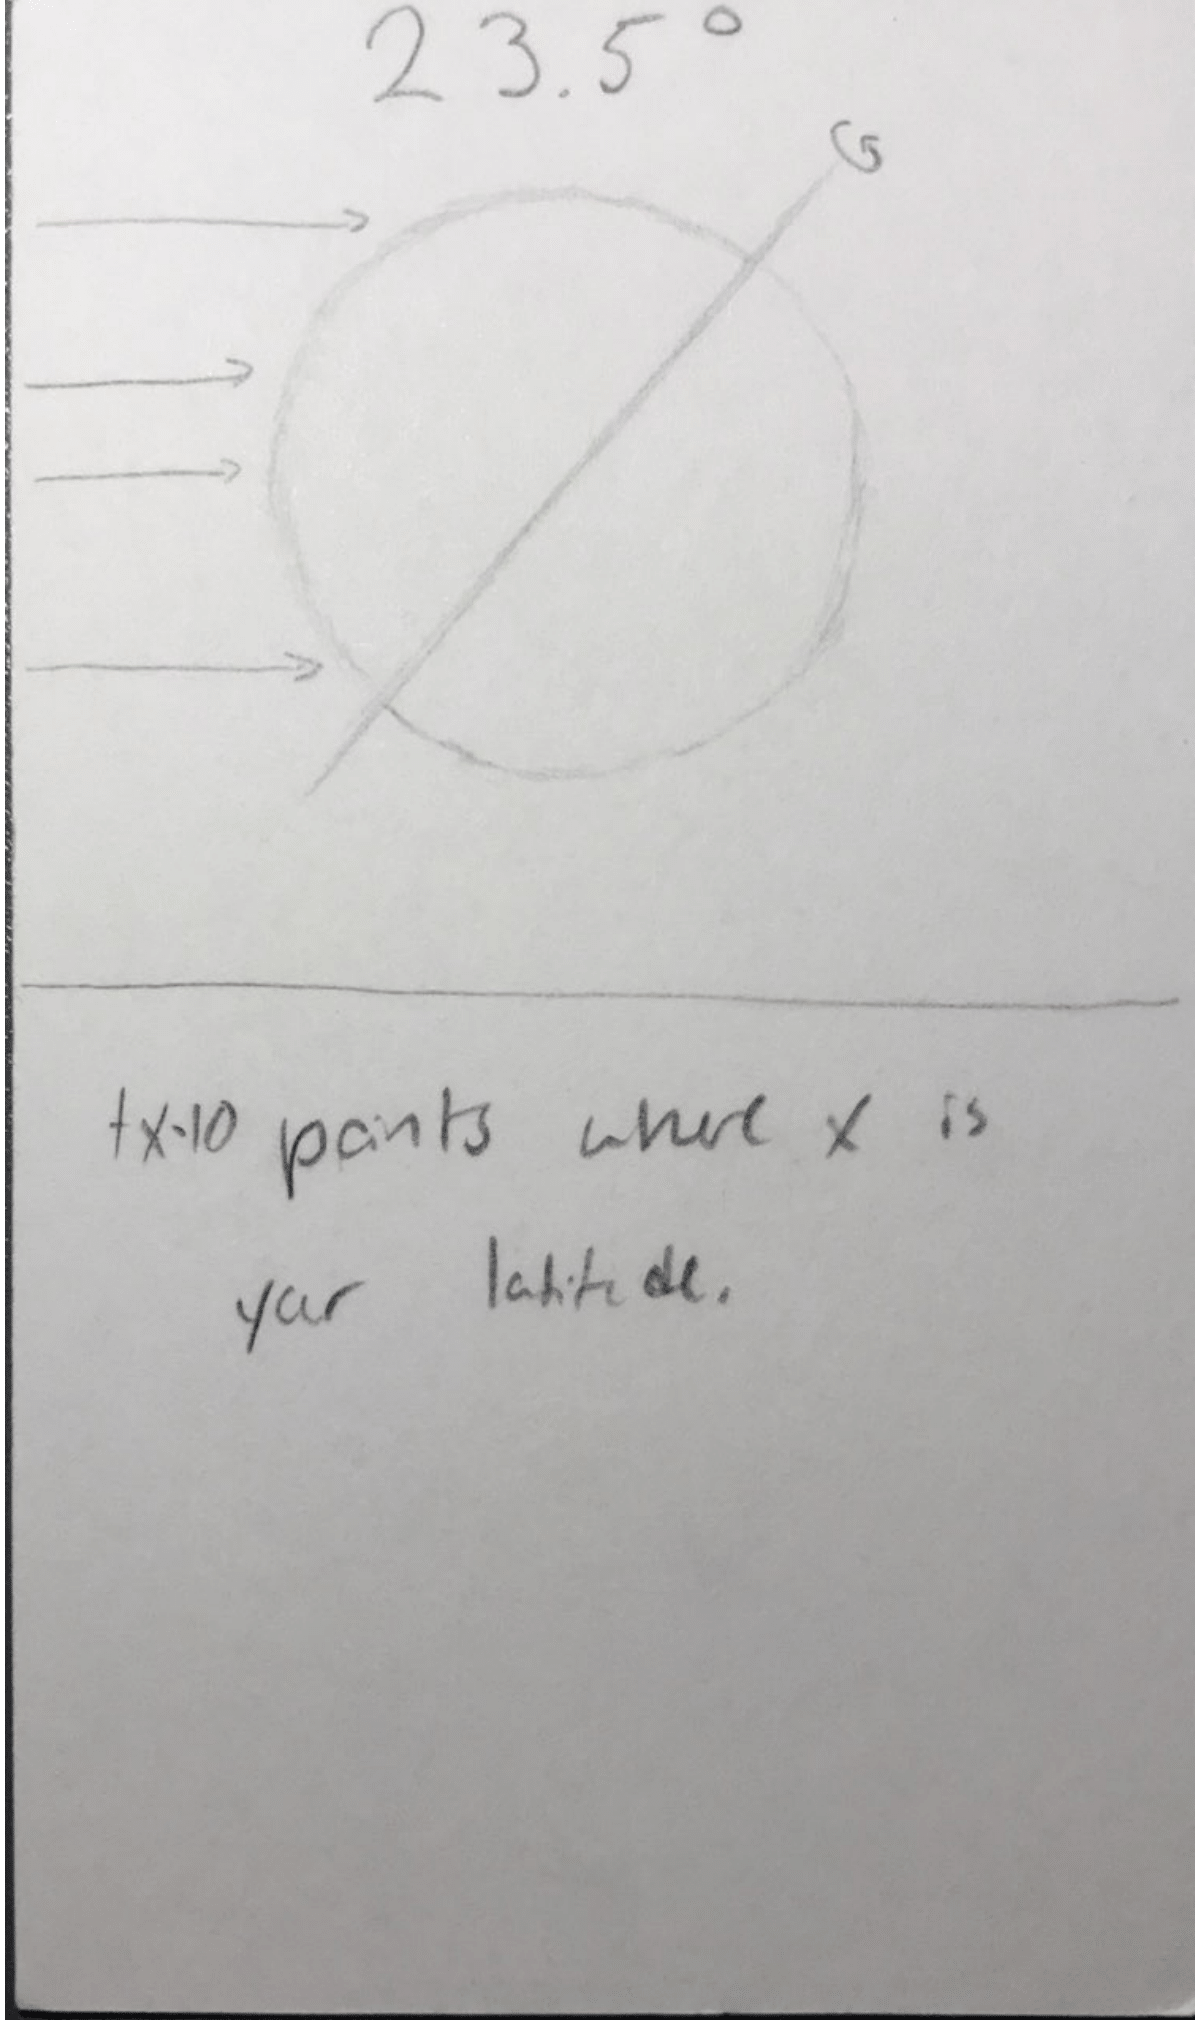 23.5°
+x·10 points where x is
your latitude.